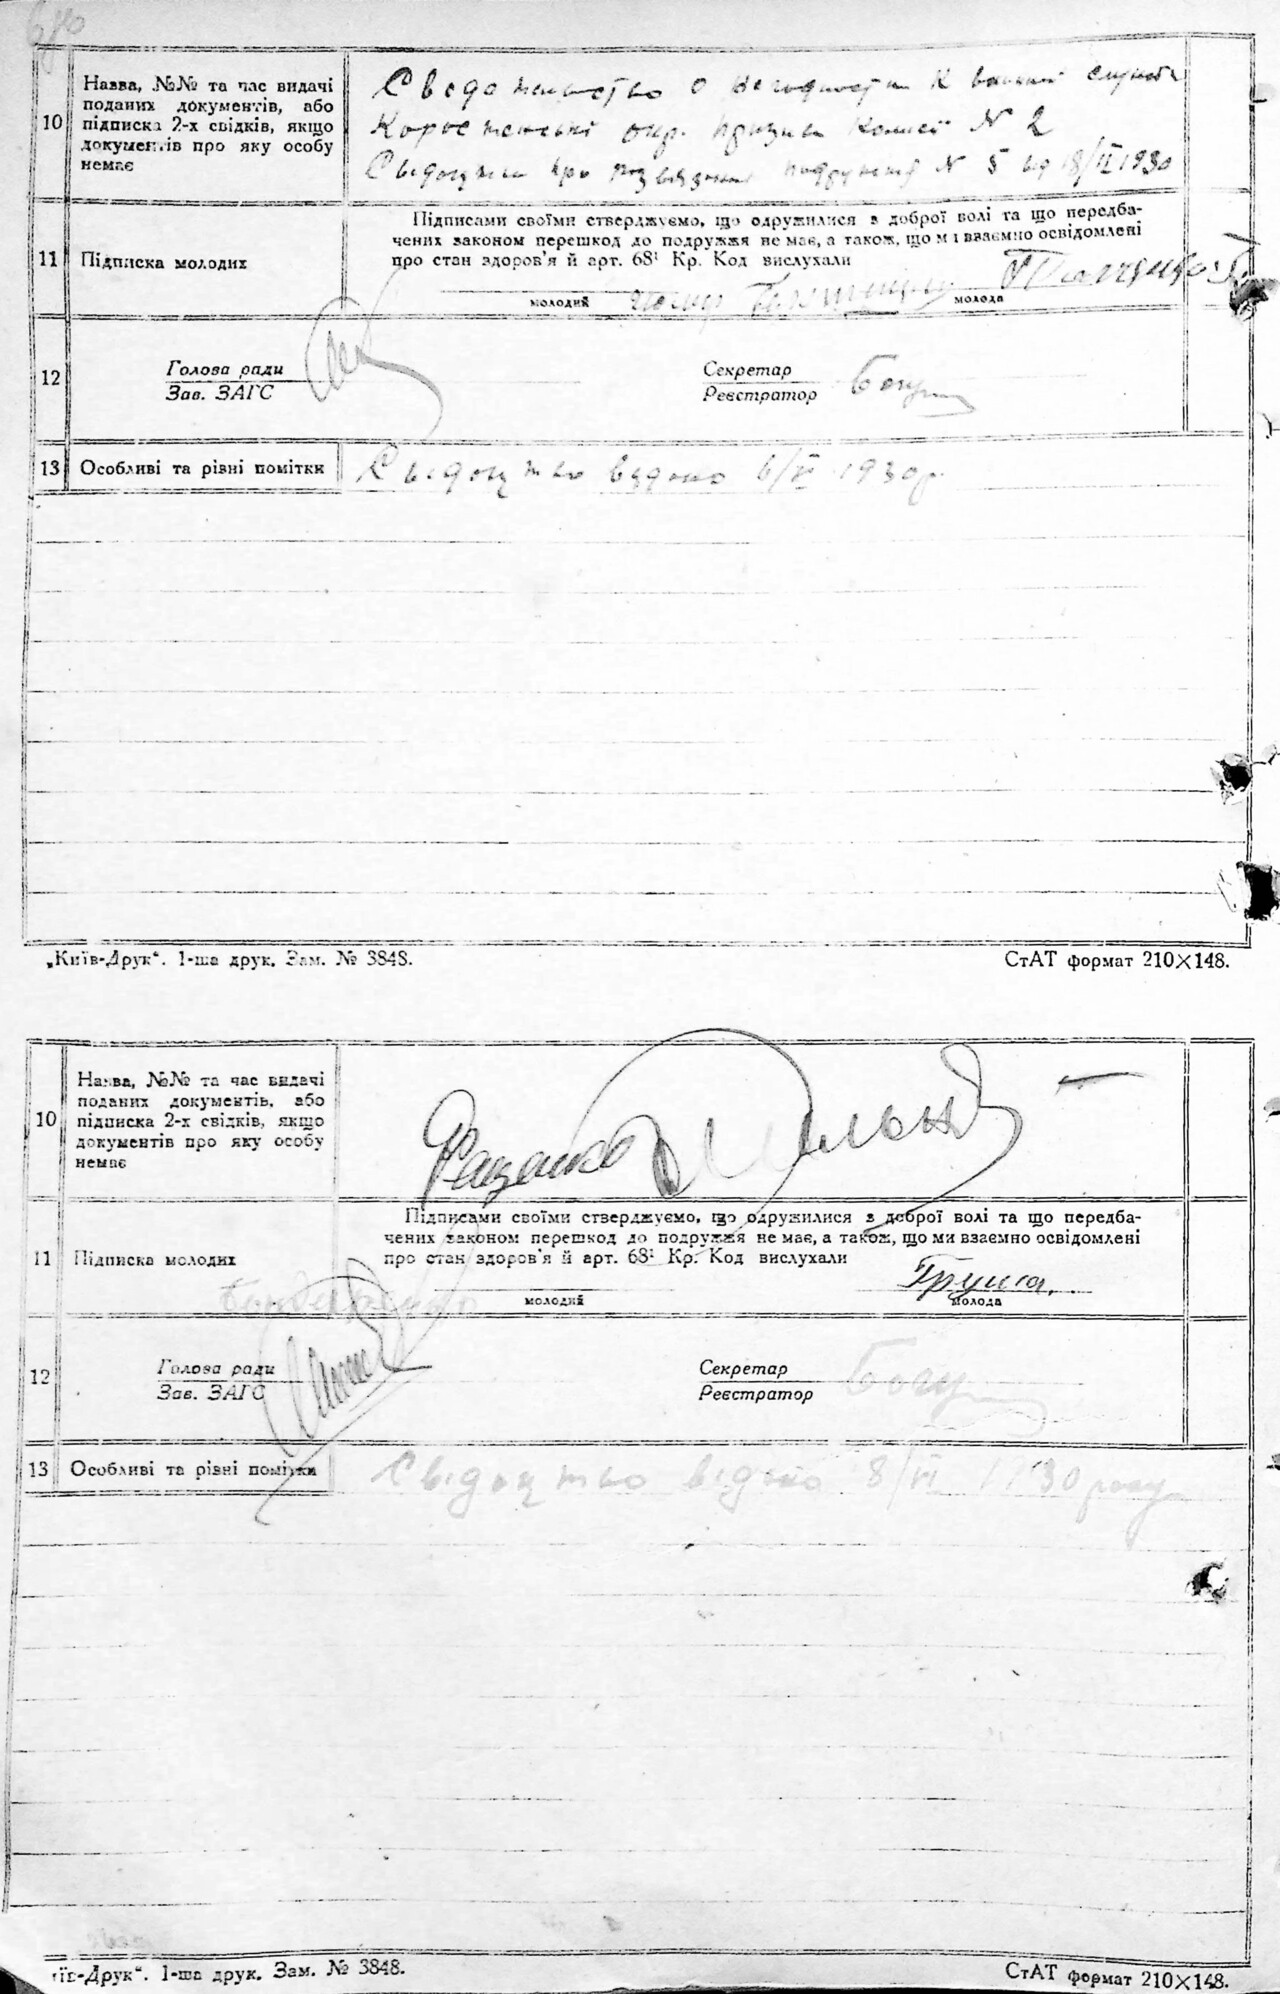 10
Назва, №№ та час видачі
поданих документів, або
підписка 2-х свідків, якщо
документів про яку особу
немає
Сведотельство о негодности к воиной службе
Коростенські окр. призив комісі N 2
Свідоцтво про розвязання подружжя N 5 від 18/II 1930
11
Підписка молодих
Підписами своїми стверджуємо, що одружилися з доброї волі та що передба-
чених законом перешкод до подружжя не має, а також, що ми взаємно освідомлені
про стан здоров'я й арт. 68¹ Кр. Код вислухали
молодий
молода
12
Голова ради
Зав. ЗАГС
Секретар
Реєстратор
13
Особливі та різні помітки
Свідоцтво видано 6/VI 1930 р.
„Київ-Друк“. 1-ша друк. Зам. № 3848.
СтАТ формат 210×148.
10
Назва, №№ та час видачі
поданих документів, або
підписка 2-х свідків, якщо
документів про яку особу
немає
11
Підписка молодих
Підписами своїми стверджуємо, що одружилися з доброї волі та що передба-
чених законом перешкод до подружжя не має, а також, що ми взаємно освідомлені
про стан здоров'я й арт. 68¹ Кр. Код вислухали
Груша.
молодий
молода
12
Голова ради
Зав. ЗАГС
Секретар
Реєстратор
13
Особливі та різні помітки
Свідоцтво видано 8/VI 1930 року
їв-Друк“. 1-ша друк. Зам. № 3848.
СтАТ формат 210×148.